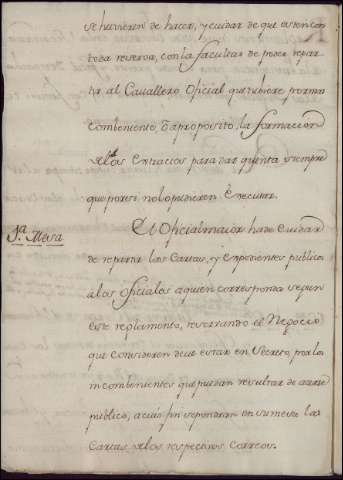 se huvieren de hacer, y cuidar de que esten con
toda reserva, con la facultad de poder repar
tir al Cavallero Oficial que tubiere por mas
combeniente, ô aproposito, la formacion
de los Extractos para dar quenta siempre
que por si no lo pudieren Executar.
1ª Mesa
El Oficial maior ha de Cuidar
de repartir las Cartas, y Expedientes publicos
a los Oficiales a quien corresponda segun
este reglamento, reservando el Negocio
que Consideren deve estar en Secreto, por los
incombenientes que puedan resultar de acerse
publico, a cuio fin se pondran en su mesa las
Cartas de los respectivos Correos.